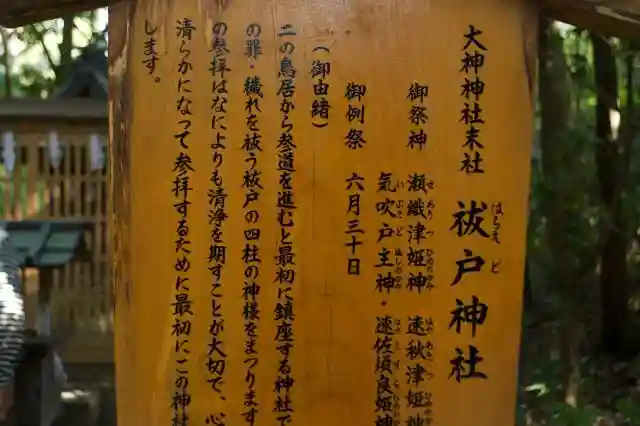 大神神社末社
祓戸神社
はらえど
御祭神
瀬織津姫神
せおりつひめのかみ
速秋津姫神
気吹戸主神・速佐須良姫神
御例祭 六月三十日
(御由緒)
二の鳥居から参道を進むと最初に鎮座する神社で
の罪・穢れを祓う祓戸の四柱の神様をまつります
の参拝はなによりも清浄を期すことが大切で、心
清らかになって参拝するために最初にこの神社
します。